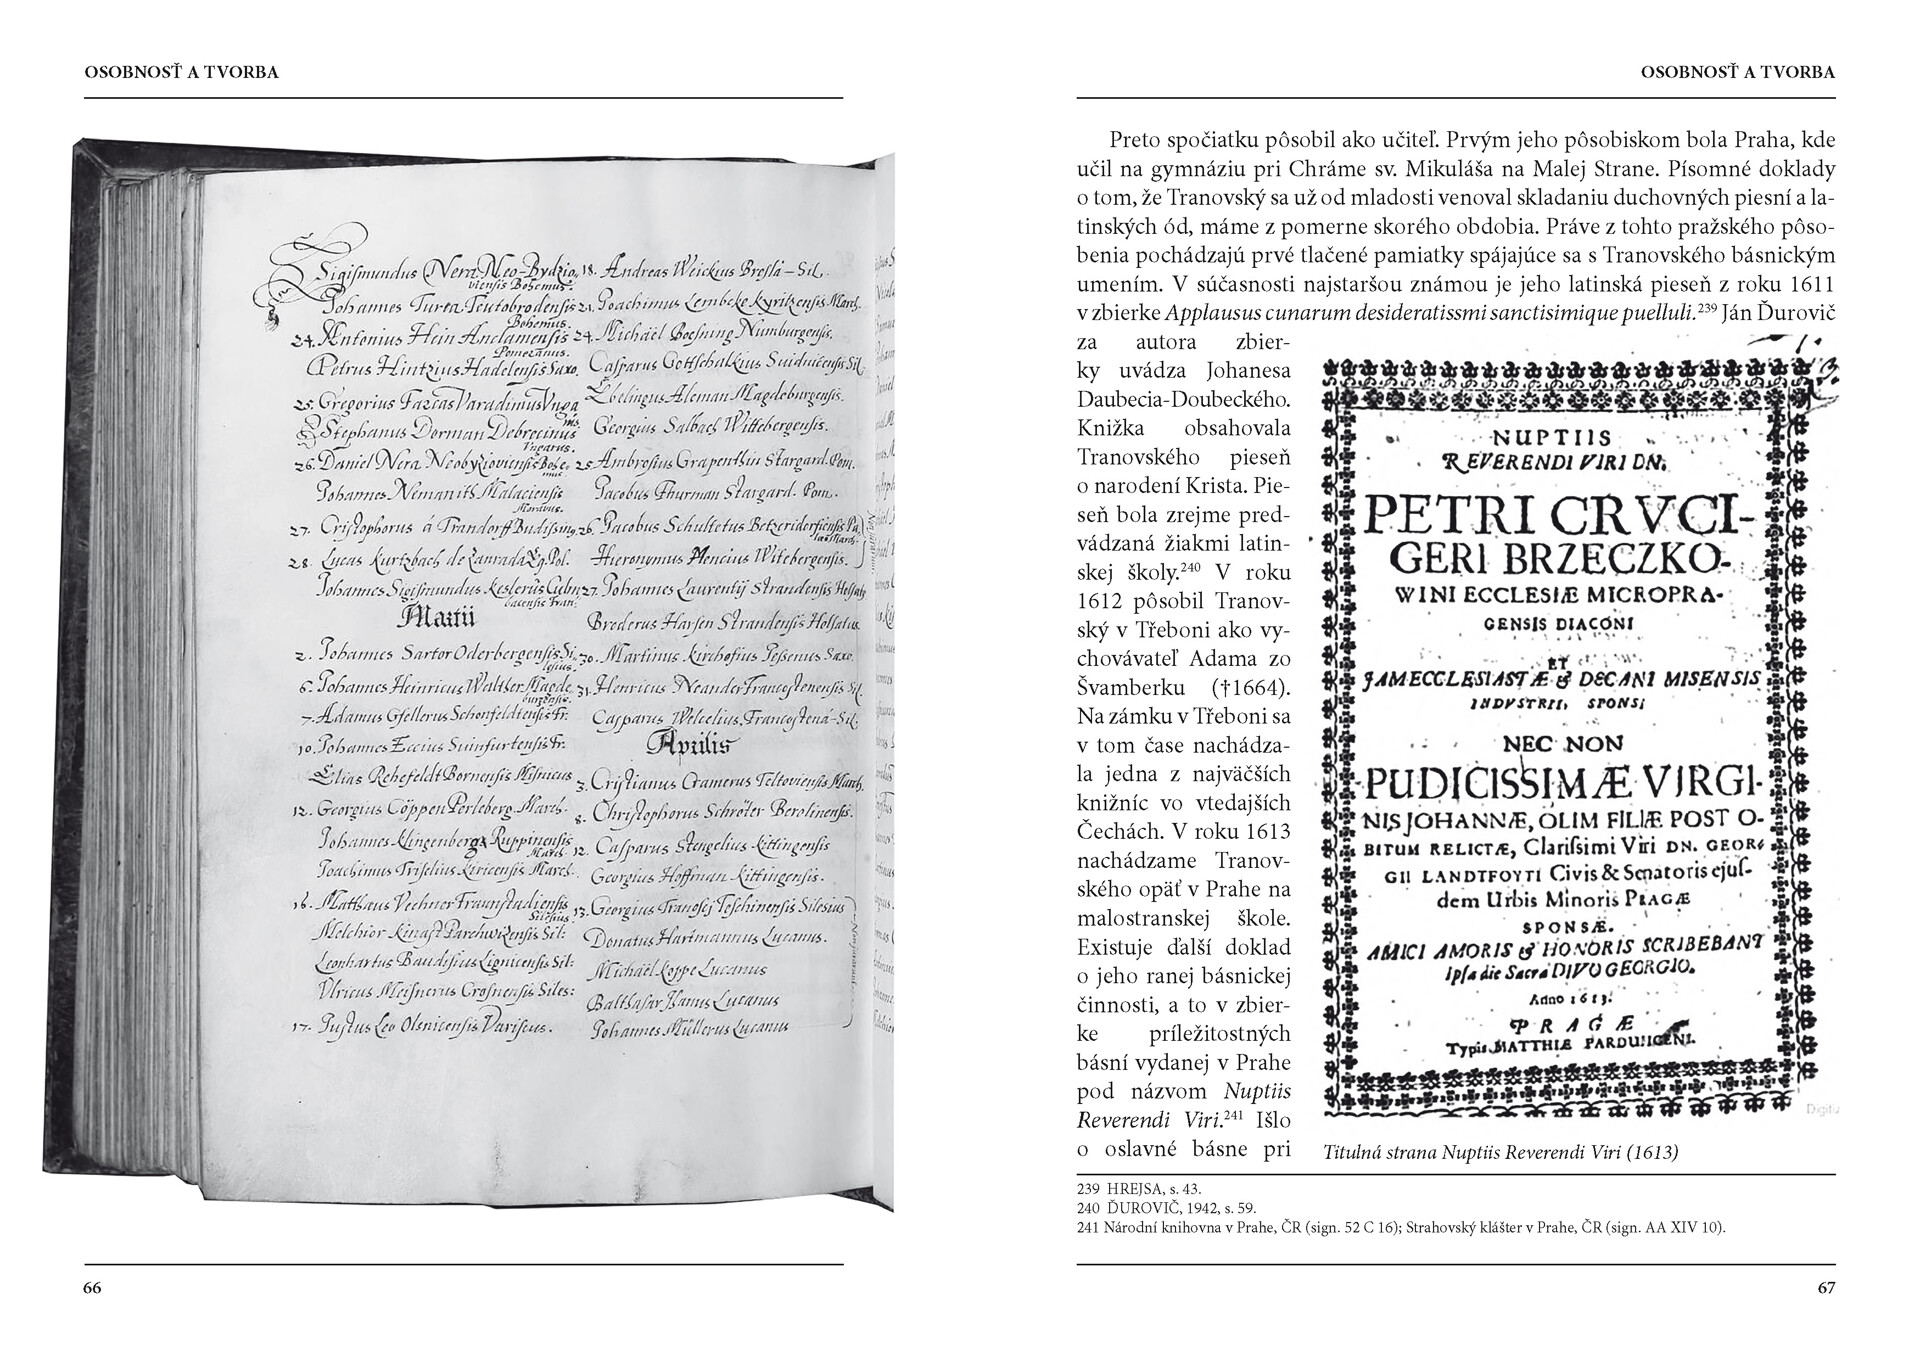 OSOBNOSŤ A TVORBA
Sigismundus Nera Neo-Bydzio
viensis Bohemus.
Johannes Turea Teutobrodensis
Bohemus.
24. Antonius Hein Anclamensis
Pomeranus.
Petrus Hintzius Hadelensis Saxo.
25. Gregorius Farcas Varadinus Unga
Stephanus Dorman Debrecinus
Ungarus.
26. Daniel Nera
Johannes Malaciensis
Moravus.
27. Cristophorus á
28. Lucas Kurtzbach de
Johannes Sigismundus
Martii
2. Johannes Sartor Oderbergensis Si
lesius.
6. Johannes Heinricus Walther Magde
burgensis.
7. Adamus Gsellerus Schonfeldtensis Fr.
10. Johannes Eccius Suinfurtensis Fr.
Elias Rehefeldt Bornensis Misnicus
12. Georgius Cöppen Perleberg. March.
Johannes Klingenberg Ruppinensis
March.
Joachimus March.
16. Matthaus Vechner Fraunstadiensis
Silesius
Melchior Sil:
Leonhartus Baudisius Lignicensis Sil:
Ulricus Meisnerus Crosnensis Siles:
17. Justus Leo Olsnicensis Variscus.
18. Andreas Weickius Breslâ-Sil.
21. Joachimus Lembcke Kyritzensis March.
24. Michäel Boesning Numburgensis.
Casparus Gottschalkius Suidnicensis Sil
Ebelingus Aleman Magdeburgensis.
Georgius Salbach Wittebergensis.
25. Ambrosius Grapenthin Stargard. Pom.
Jacobus Thurman Stargard. Pom.
26. Jacobus Schultetus
Hieronymus Mencius Witebergensis.
27. Johannes Laurentij Strandensis Holsatus
Brederus Harsen Strandensis Holsatus
30. Martinus Kirchofius Saxo.
31. Henricus Neander Sil.
Casparus Sil:
Aprilis
3. Cristianus Cramerus Teltoviensis March.
8. Christophorus Schröter Berolinensis.
12. Casparus Stengelius Kittingensis
Georgius Hoffman Kittingensis.
13. Georgius Tranosci Teschinensis Silesius
Donatus Hartmannus Lucanus.
Michäel Koppe Lucanus
Balthasar Hanus Lucanus
Johannes Müllerus Lucanus
66
OSOBNOSŤ A TVORBA
Preto spočiatku pôsobil ako učiteľ. Prvým jeho pôsobiskom bola Praha, kde
učil na gymnáziu pri Chráme sv. Mikuláša na Malej Strane. Písomné doklady
o tom, že Tranovský sa už od mladosti venoval skladaniu duchovných piesní a la-
tinských ód, máme z pomerne skorého obdobia. Práve z tohto pražského pôso-
benia pochádzajú prvé tlačené pamiatky spájajúce sa s Tranovského básnickým
umením. V súčasnosti najstaršou známou je jeho latinská pieseň z roku 1611
v zbierke Applausus cunarum desideratissmi sanctisimique puelluli.239 Ján Ďurovič
za autora zbier-
ky uvádza Johanesa
Daubecia-Doubeckého.
Knižka obsahovala
Tranovského pieseň
o narodení Krista. Pie-
seň bola zrejme pred-
vádzaná žiakmi latin-
skej školy.240 V roku
1612 pôsobil Tranov-
ský v Třeboni ako vy-
chovávateľ Adama zo
Švamberku (†1664).
Na zámku v Třeboni sa
v tom čase nachádza-
la jedna z najväčších
knižníc vo vtedajších
Čechách. V roku 1613
nachádzame Tranov-
ského opäť v Prahe na
malostranskej škole.
Existuje ďalší doklad
o jeho ranej básnickej
činnosti, a to v zbier-
ke príležitostných
básní vydanej v Prahe
pod názvom Nuptiis
Reverendi Viri.241 Išlo
o oslavné básne pri
NUPTIIS
REVERENDI VIRI DN.
PETRI CRVCI-
GERI BRZECZKO-
WINI ECCLESIÆ MICROPRA-
GENSIS DIACONI
ET
JAM ECCLESIASTÆ & DECANI MISENSIS
INDVSTRII, SPONSI
NEC NON
PUDICISSIMÆ VIRGI-
NIS JOHANNÆ, OLIM FILIÆ POST O-
BITUM RELICTÆ, Clariſsimi Viri DN. GEOR-
GII LANDTFOYTI Civis & Senatoris ejuſ-
dem Urbis Minoris PRAGÆ
SPONSÆ.
AMICI AMORIS & HONORIS SCRIBEBANT
Ipſa die Sacra DIVO GEORGIO.
Anno 1613.
PRAGÆ
Typis MATTHIÆ PARDUBICENI.
Digitiz
Titulná strana Nuptiis Reverendi Viri (1613)
239 HREJSA, s. 43.
240 ĎUROVIČ, 1942, s. 59.
241 Národní knihovna v Prahe, ČR (sign. 52 C 16); Strahovský klášter v Prahe, ČR (sign. AA XIV 10).
67